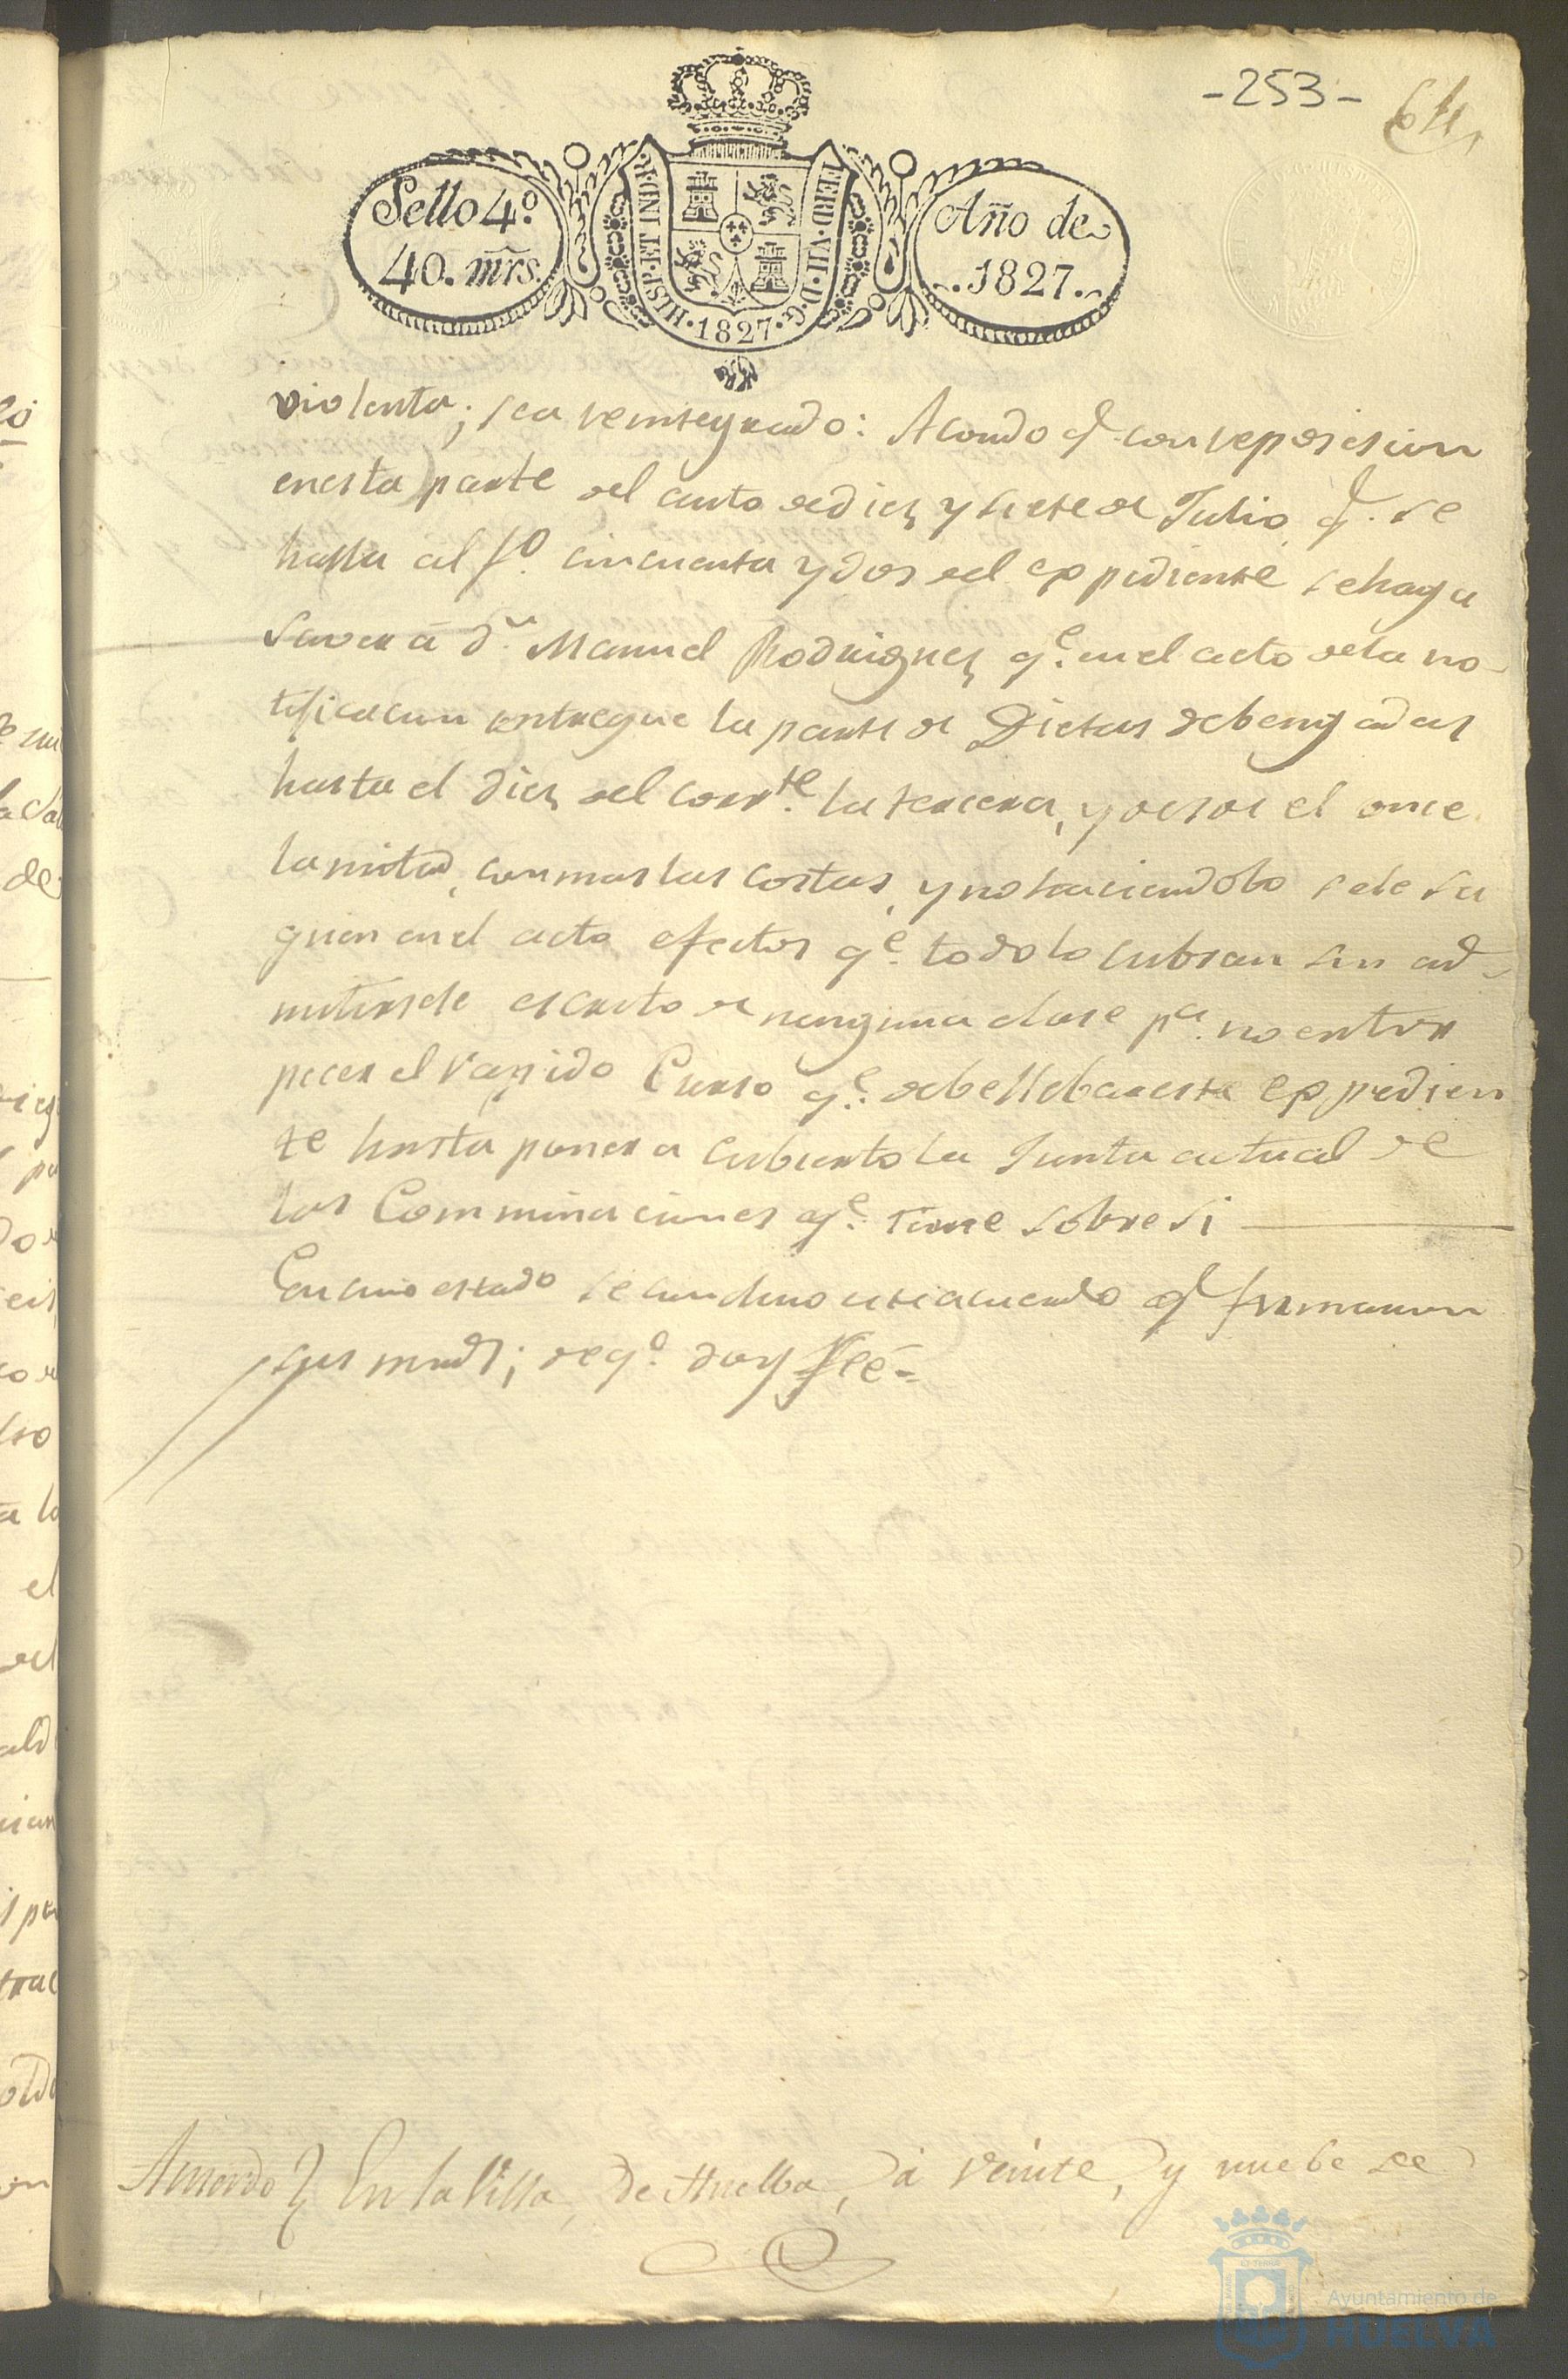 -253-
64
Sello 4º.
40. mrs.
HISP. ET IND. R.
1827
FERD. VII. D. G.
Año de
1827.
violenta; sea reintegrado: Acordo q. con reposicion
enesta parte del auto dediez y siete de Julio, q. se
halla al fº. cincuenta ydos del expediente sehaga
saver a dn. Manuel Rodriguez qe. enel acto dela no-
tificacion entregue la parte de Dietas debengadas
hasta el diez del corrte. la tercera, y desde el once
lamitad, conmas las costas, y nohaciendolo sele sa
quen enel acto efectos qe. todolo cubran sin ad-
mitirsele escrito de ninguna clase pa. no entor
pecer el rapido Curso qe. debellebareste expedien
te hasta poner a cubierto la Junta actual de
las Comminaciones qe. tiene sobresi
En cuio estado se concluio esteacuerdo q firmaron
sus mrds; deqº. doy Feé-
Acuerdo En la Villa, de Huelba, á veinte, y nuebe de
Ayuntamiento de
HUELVA